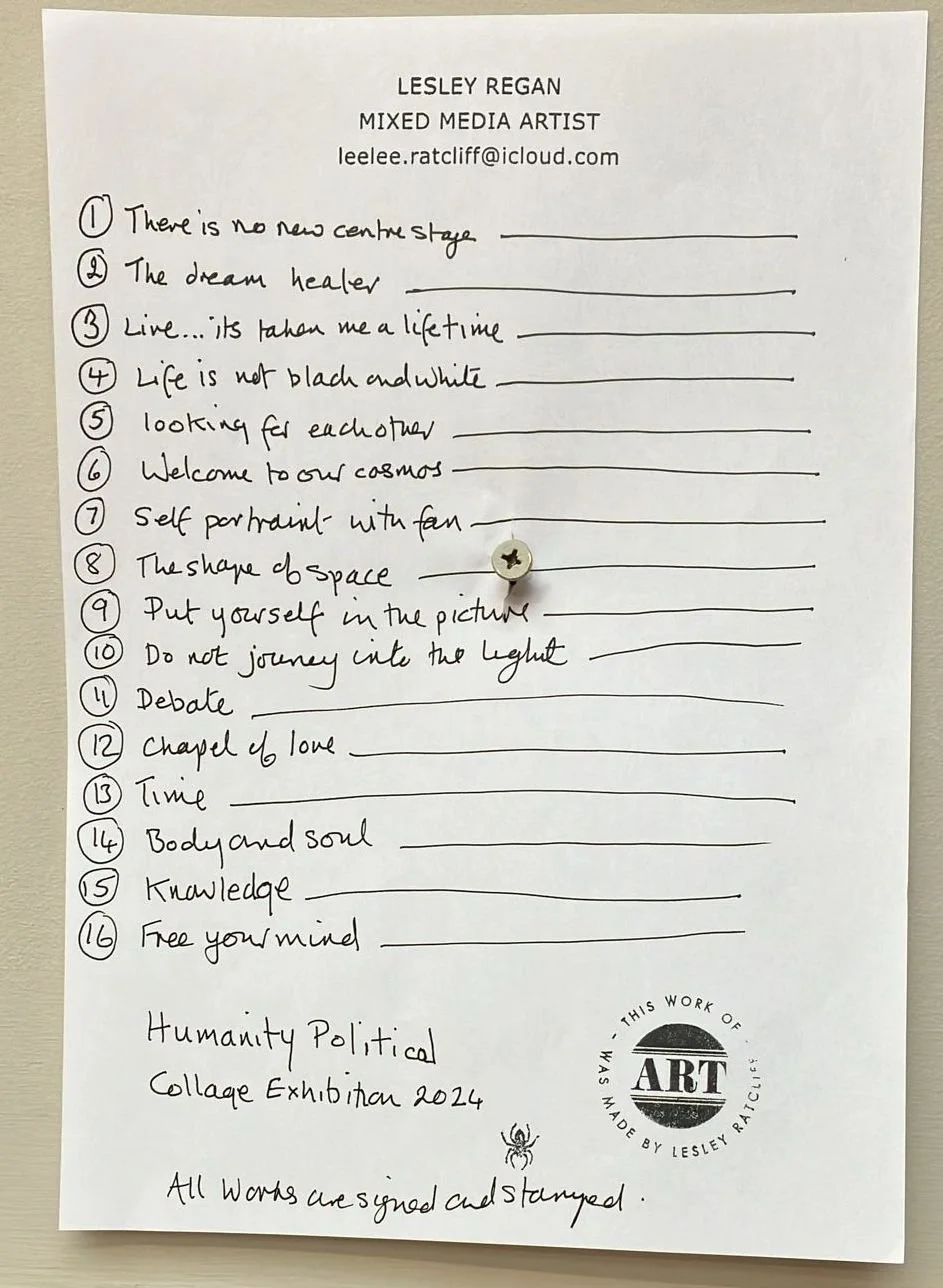 LESLEY REGAN
MIXED MEDIA ARTIST
leelee.ratcliff@icloud.com
① There is no new centre stage
② The dream healer
③ Live... its taken me a lifetime
④ Life is not black and white
⑤ looking for each other
⑥ Welcome to our cosmos
⑦ Self portraint with fan
⑧ The shape of space
⑨ Put yourself in the picture
⑩ Do not jouney into the leghut
⑪ Debate
⑫ Chapel of love
⑬ Time
⑭ Body and soul
⑮ Knowledge
⑯ Free your mind
Humanity Political
Collage Exhibition 2024
- THIS WORK OF -
ART
WAS MADE BY LESLEY RATCLIFF
All Works are signed and stamped.